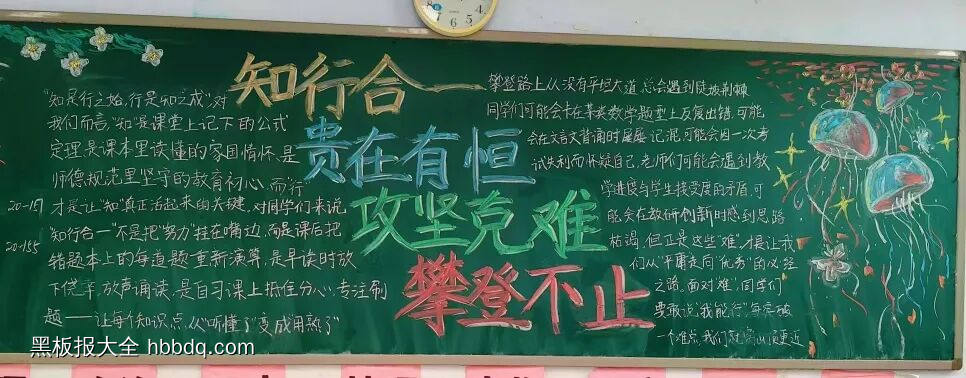 知行合一
贵在有恒
攻坚克难
攀登不止
"知是行之始,行是知之成",对
我们而言,"知"是课堂上记下的公式
定理,是课本里读懂的家国情怀,是
师德规范里坚守的教育初心,而"行"
才是让"知"真正活起来的关键,对同学们来说
"知行合一"不是把"努力"挂在嘴边,而是课后把
错题本上的每道题重新演算,是早读时放
下侥幸,放声诵读,是自习课上抵住分心,专注刷
题——让每个知识点,从"听懂了"变成"用熟了"
20-157
20-155
攀登路上从没有平坦大道,总会遇到陡坡荆棘
同学们可能会在某类数学题型上反复出错,可能
会在文言文背诵时屡屡记混,可能会因一次考
试失利而怀疑自己,老师们可能会遇到教
学进度与学生接受度的矛盾,可
能会在教研创新时感到思路
枯竭,但正是这些"难",才是让我
们从"平庸走向"优秀"的必经
之路,面对"难",同学们
要敢说"我能行",每突破
一个难点,我们就离山顶更近
黑板报大全 hbbdq.com